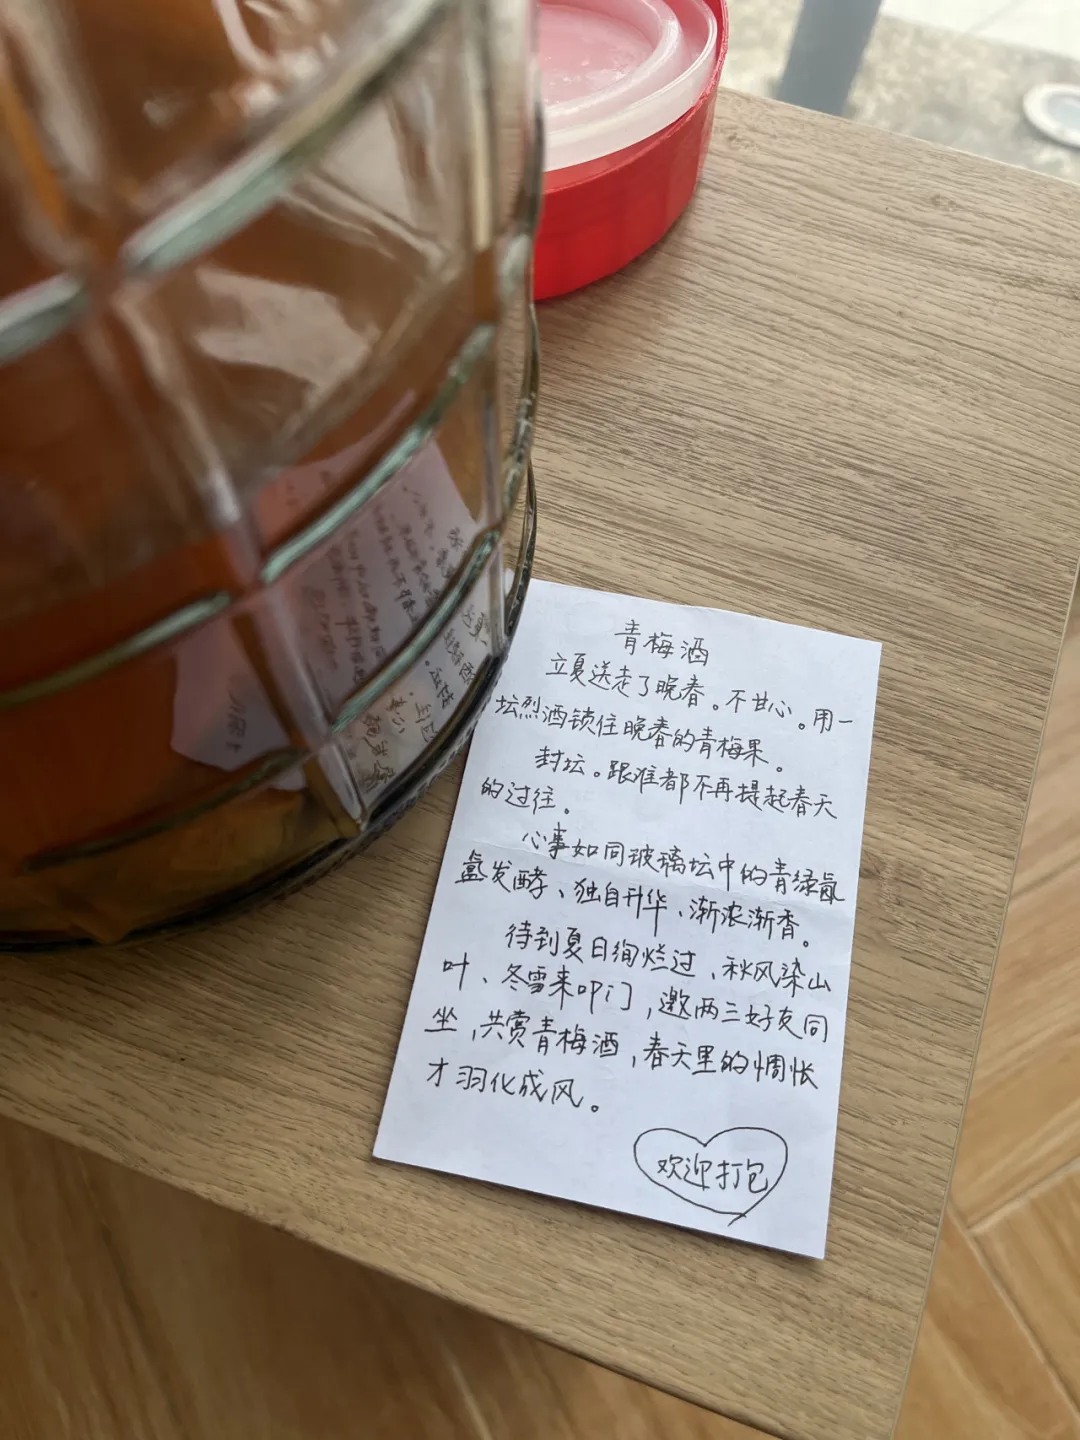 青梅酒
立夏送走了晚春。不甘心。用一
坛烈酒锁住晚春的青梅果。
封坛。跟谁都不再提起春天
的过往。
心事如同玻璃坛中的青绿氤
氲发酵、独自升华、渐浓渐香。
待到夏日绚烂过、秋风染山
叶、冬雪来叩门，邀两三好友同
坐，共赏青梅酒，春天里的惆怅
才羽化成风。
欢迎打包